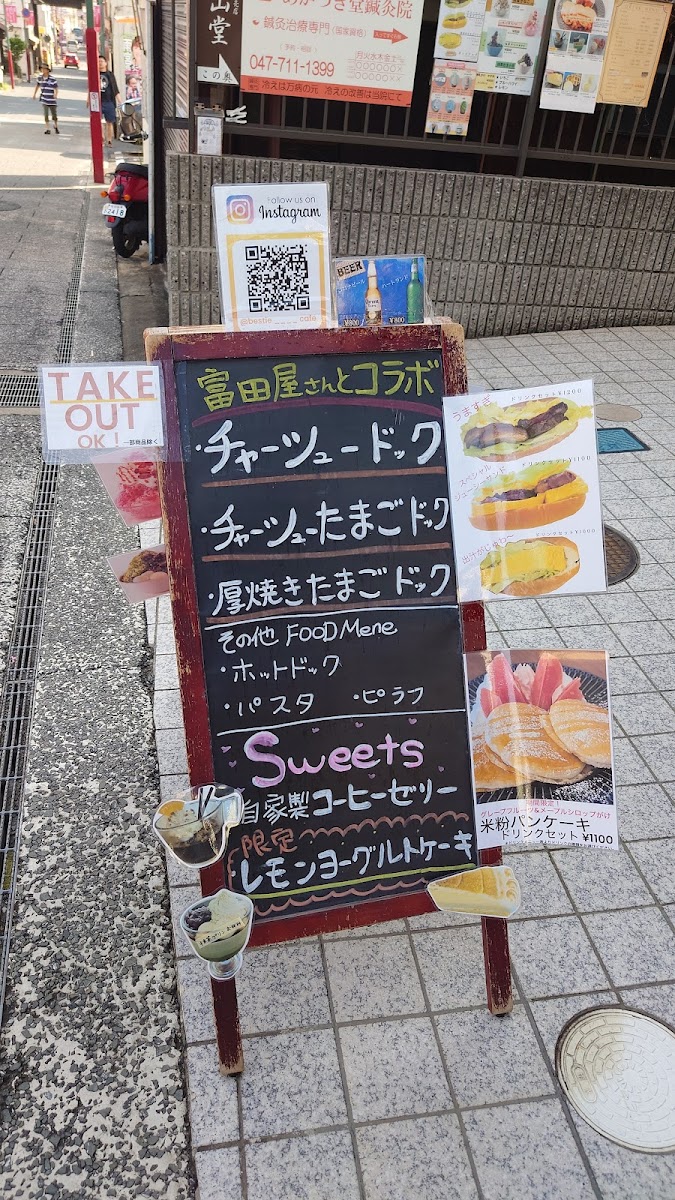 山堂
この奥
あかつき堂鍼灸院
鍼灸治療専門(国家資格)
(予約・相談)
047-711-1399
月火水木金土
冷えは万病の元 冷えの改善は当院にて
Follow us on
Instagram
BEER
ハートランド
¥800
¥800
TAKE
OUT
OK! 一部商品除く
富田屋さんとコラボ
・チャーシュードック
・チャーシューたまごドック
・厚焼きたまごドック
その他 FOOD Mene
・ホットドック
・パスタ ・ピラフ
Sweets
自家製コーヒーゼリー
限定
レモンヨーグルトケーキ
ドリンクセット¥1200
うますぎ
ドリンクセット¥1100
スペシャル
ジューシーサンド
ドリンクセット¥1000
出汁がじゅわ〜
期間限定!
グレープフルーツ&メープルシロップがけ
米粉パンケーキ
ドリンクセット ¥1100